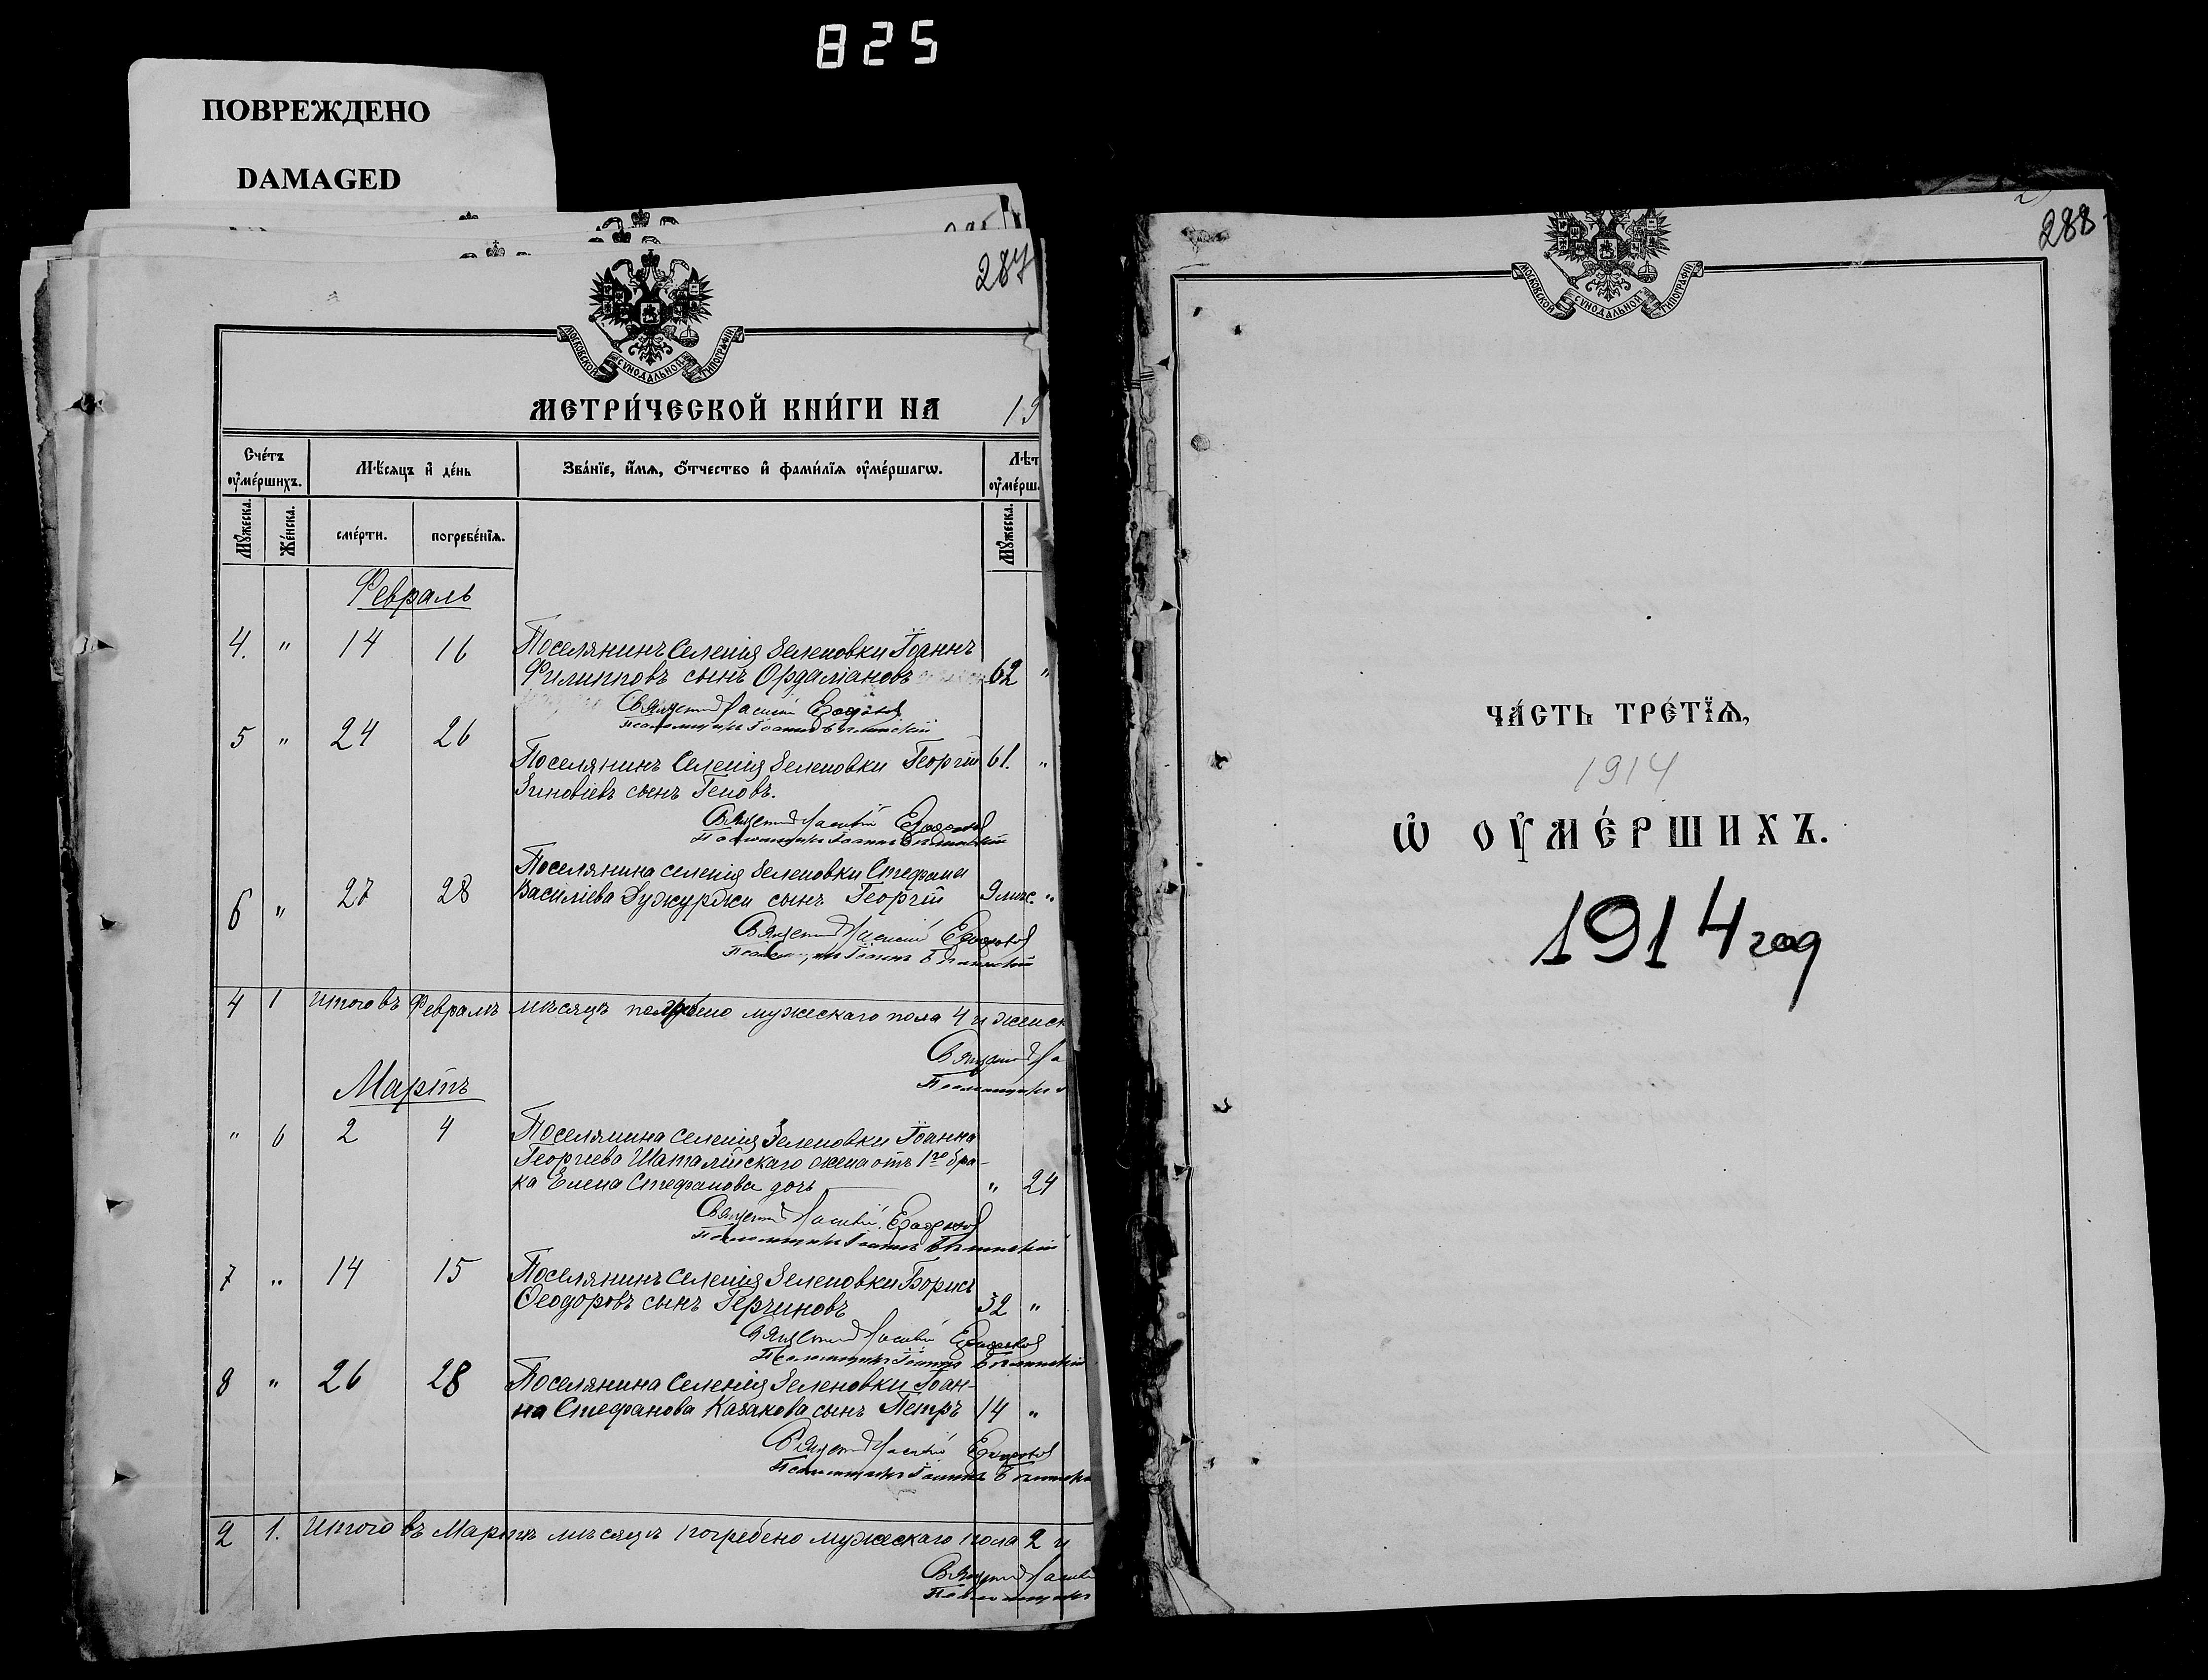 825
ПОВРЕЖДЕНО
DAMAGED
287
МОСКОВСКОЙ СѴНОДАЛЬНОЙ ТИПОГРАФІИ
МЕТРИ́ЧЕСКОЙ КНИ́ГИ НА 19
Сче́тъ оу҆ме́ршихъ.
Мѣ́сяцъ и҆ де́нь
Зва́нїе, и҆́мѧ, ѻ҆́тчество и҆ фами́лїѧ оу҆ме́ршагѡ.
Лѣт
оу҆ме́рш
Мꙋ́жеска.
Же́нска.
сме́рти.
погребе́нїѧ.
Мꙋ́жеска.
Февраль
4. " 14 16 Поселянинъ селенія Зеленовки Іоаннъ
Филипповъ сынъ Ордаміановъ 62 "
Священникъ Василій
Псаломщикъ Іоаннъ
5 " 24 26
Поселянинъ селенія Зеленовки Георгій 61. "
Зиновіевъ сынъ Геновъ.
Священникъ Василій
Псаломщикъ Іоаннъ
Поселянина селенія Зеленовки Стефана
6 " 27 28 Василіева Зужурджи сынъ Георгій 9 мѣс. "
Священникъ Василій
Псаломщикъ Іоаннъ
4 1 Итого въ Февралѣ мѣсяцѣ погребено мужескаго пола 4 и женск
Священникъ Ва
Псаломщикъ
Мартъ
" 6 2 4 Поселянина селенія Зеленовки Іоанна
Георгиева Шаталійскаго жена отъ 1го бра-
ка Елена Стефанова дочь " 24
Священникъ Василій
Псаломщикъ Іоаннъ
7 " 14 15 Поселянинъ селенія Зеленовки Борисъ
Ѳеодоровъ сынъ Герчиновъ 32 "
Священникъ Василій
Псаломщикъ Іоаннъ
8 " 26 28 Поселянина селенія Зеленовки Іоан-
на Стефанова Казакова сынъ Петръ 14 "
Священникъ Василій
Псаломщикъ Іоаннъ
2 1. Итого въ Мартѣ мѣсяцѣ погребено мужескаго пола 2 и
Священникъ Васили
Псаломщикъ
288
МОСКОВСКОЙ СѴНОДАЛЬНОЙ ТИПОГРАФІИ
ЧА́СТЬ ТРЕ́ТЇѦ,
1914
Ѡ҆ ОУ҆МЕ́РШИХЪ.
1914 год